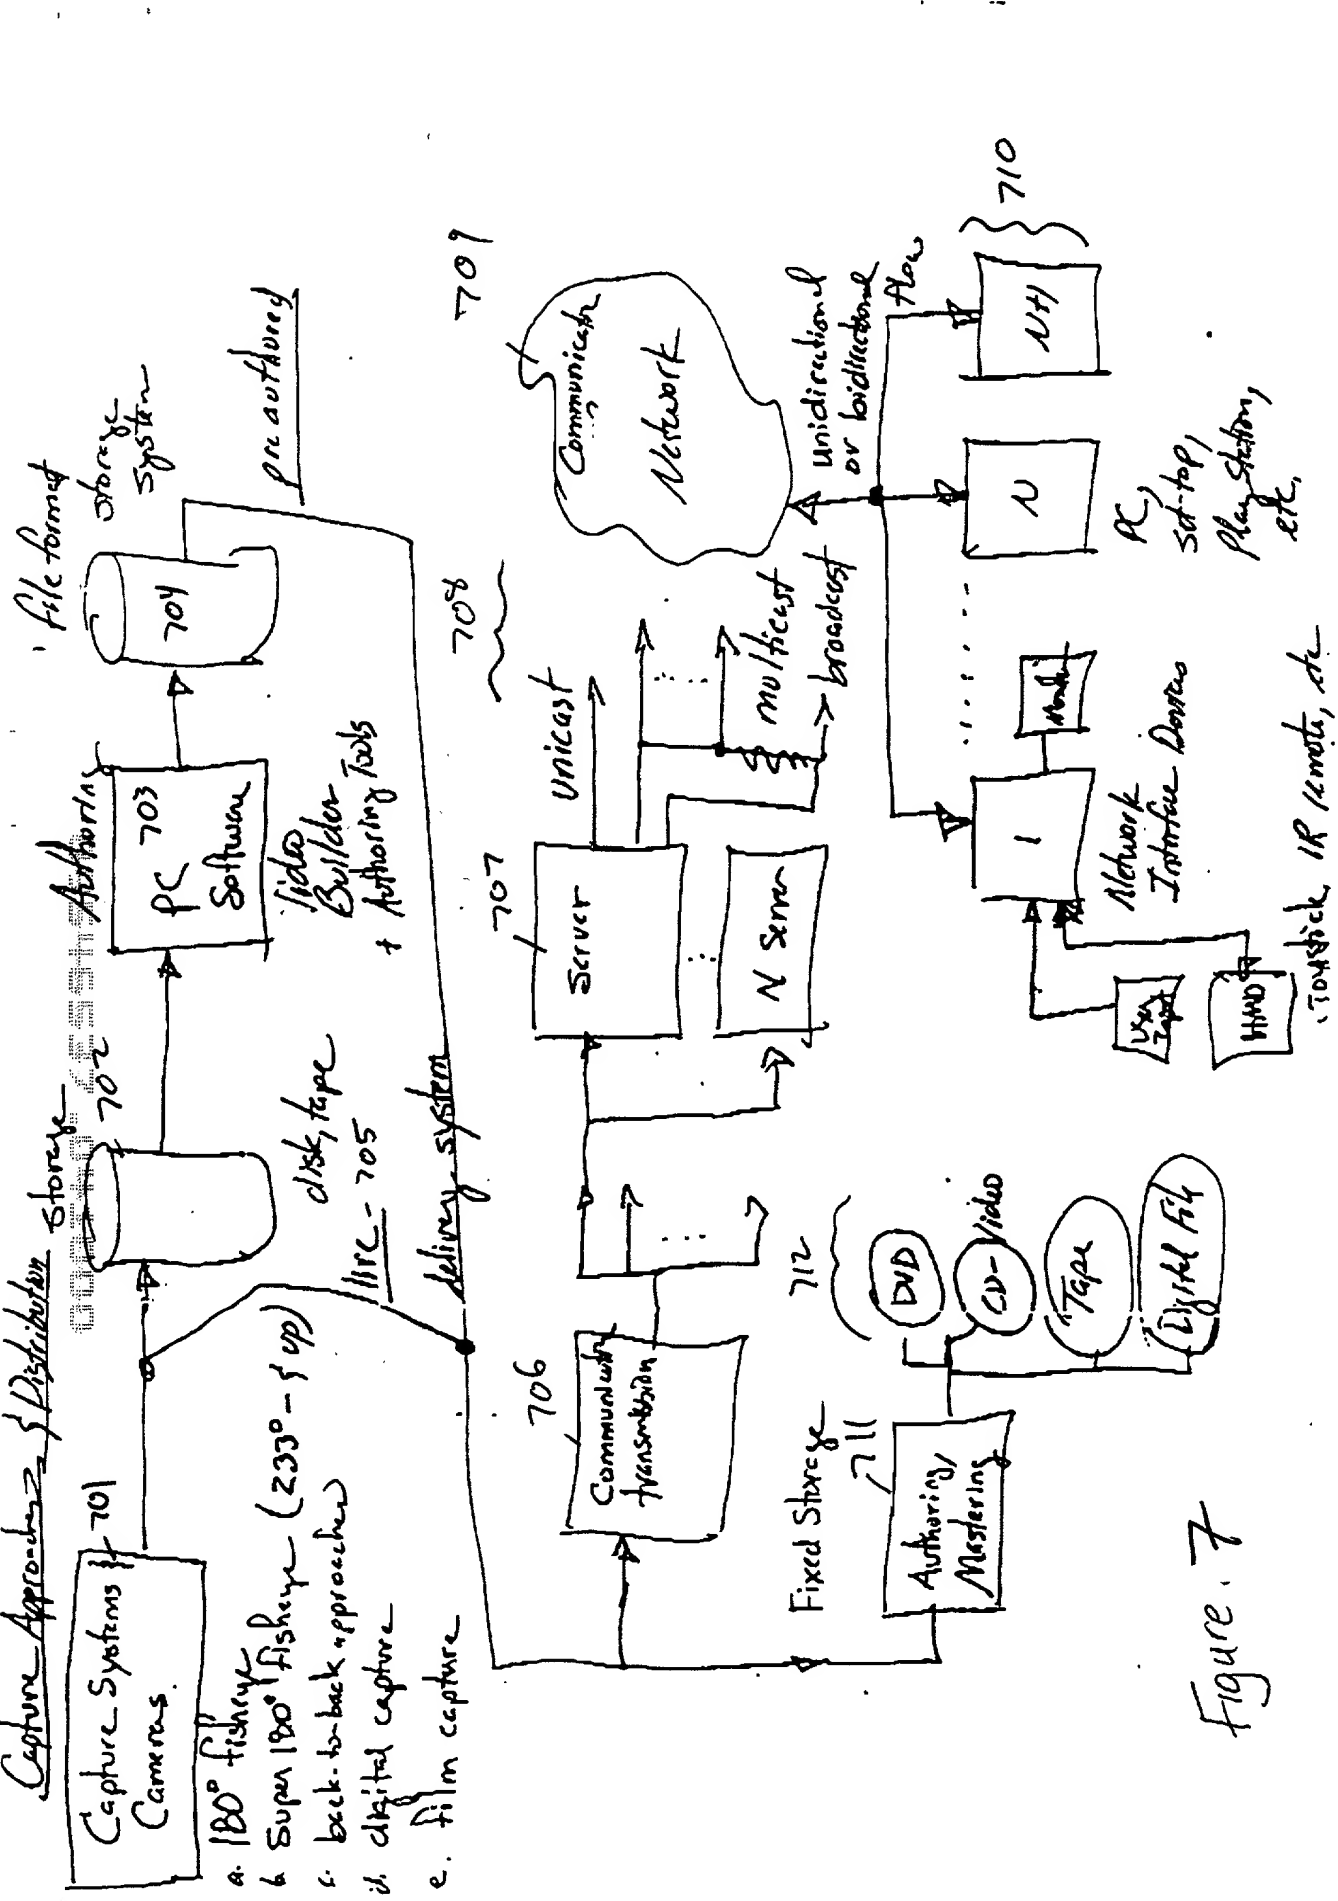 Capture Approaches & Distribution
Capture Systems
Cameras
701
a. 180° fisheye
b. Super 180° fisheye (233° - & up)
c. back-to-back approaches
d. digital capture
e. film capture
Storage
702
disk, tape
live - 705
Authoring
PC 703
Software
Video
Builder
+ Authoring Tools
File format
704
Storage
System
pre authored
delivery system
706
transmission
707
Server
N Server
708
Unicast
multicast
broadcast
709
Network
Unidirectional
or bidirectional
flow
710
1
N
N+1
Network
Interface Devices
PC,
set-top,
Play Station,
etc.
User
Input
HMD
Joystick, IR remote, etc
Fixed Storage
711
Authoring/
Mastering
712
DVD
CD-Video
Tape
Digital File
Figure. 7